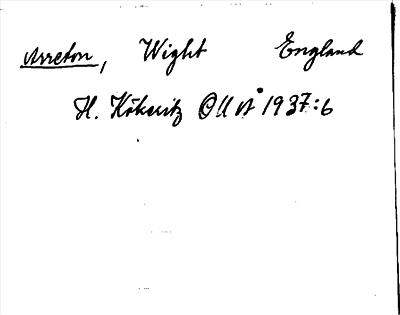 Arreton, Wight England
H. Kökeritz UUÅ 1937:6